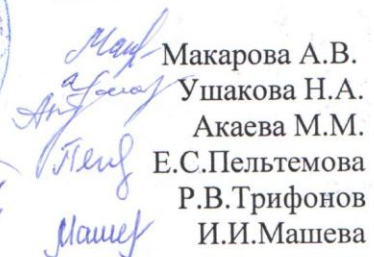 Макарова А.В.
Ушакова Н.А.
Акаева М.М.
Е.С.Пельтемова
Р.В.Трифонов
И.И.Машева